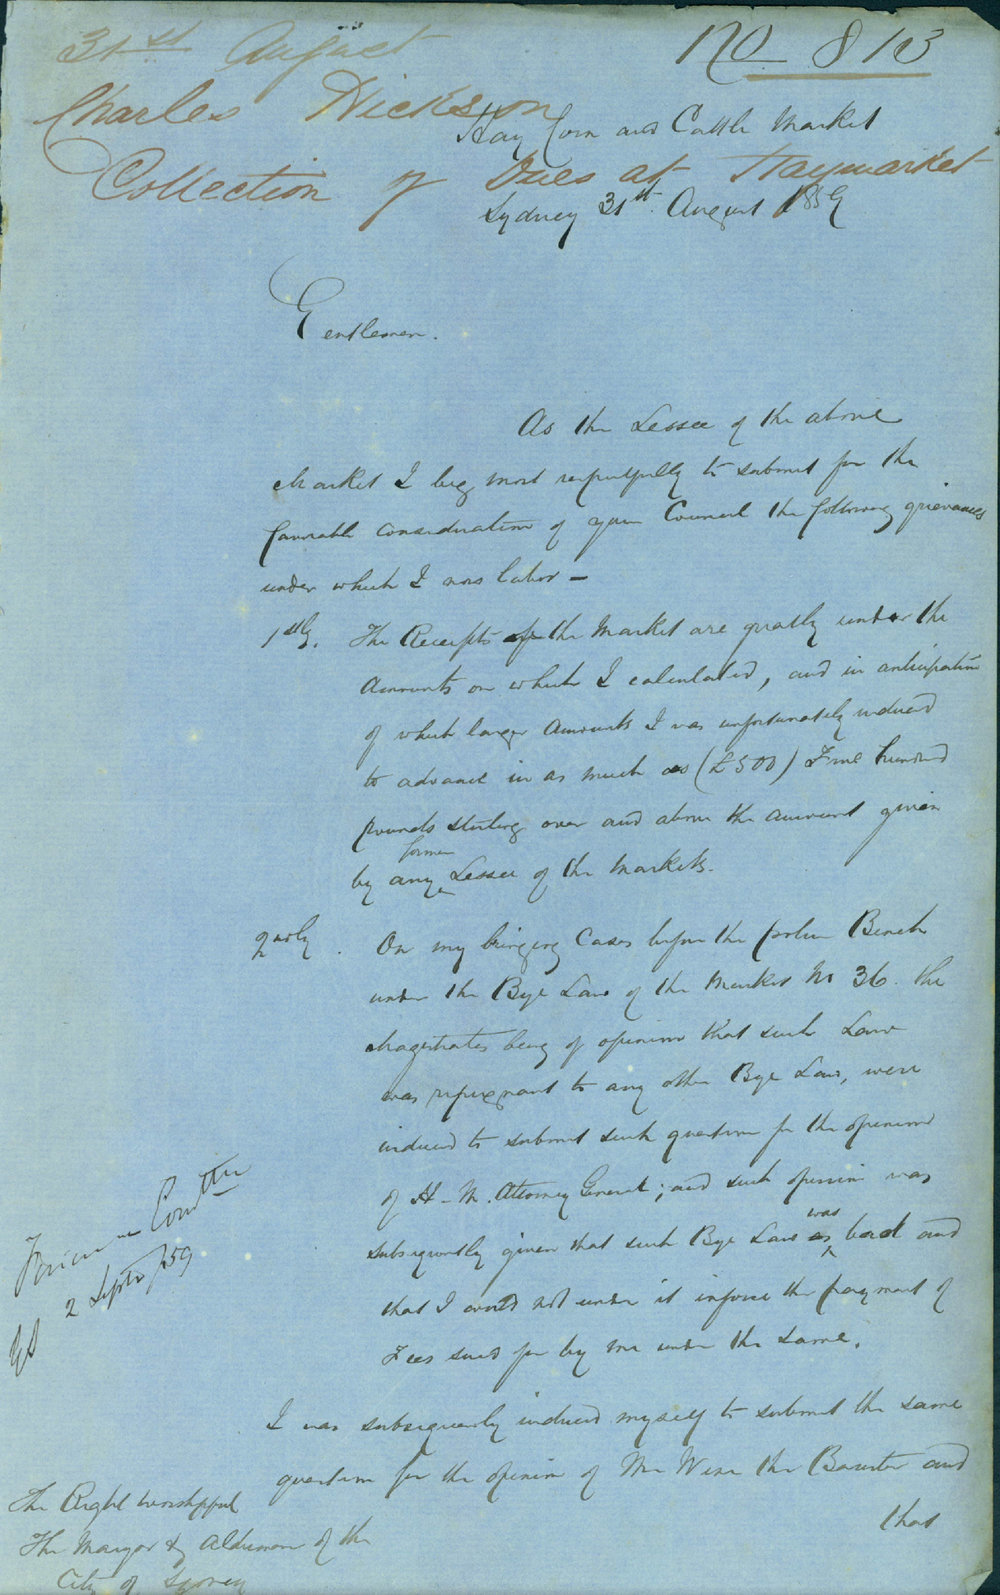 31st August
No 813
Charles Dickson
Hay Corn and Cattle Market
Collection of Dues at Haymarket
Sydney 31st August 1859
Gentlemen.
As the Lessee of the above
Market I beg most respectfully to submit for the
favorable consideration of your Council the following grievances
under which I now labor —
1stly. The Receipts of the Market are greatly under the
Amounts on which I calculated, and in anticipation
of which larger Amounts I was unfortunately induced
to advance in as much as (£500) Five hundred
pounds sterling over and above the amount given
by any former Lessee of the Markets.
2ndly. On my bringing Cases before the police Bench
under the Bye Law of the Market No 36. the
Magistrates being of opinion that such Law
was repugnant to any other Bye Law, were
induced to submit such question for the opinion
of H-M. Attorney General; and such opinion was
subsequently given that such Bye Law was bad and
that I could not under it inforce the payment of
Fees sued for by me under the same.
I was subsequently induced myself to submit the same
question for the opinion of Mr Wise the Barrister and
that
Finance Comttee
2 Septr /59
The Right Worshipful
The Mayor & Aldermen of the
City of Sydney